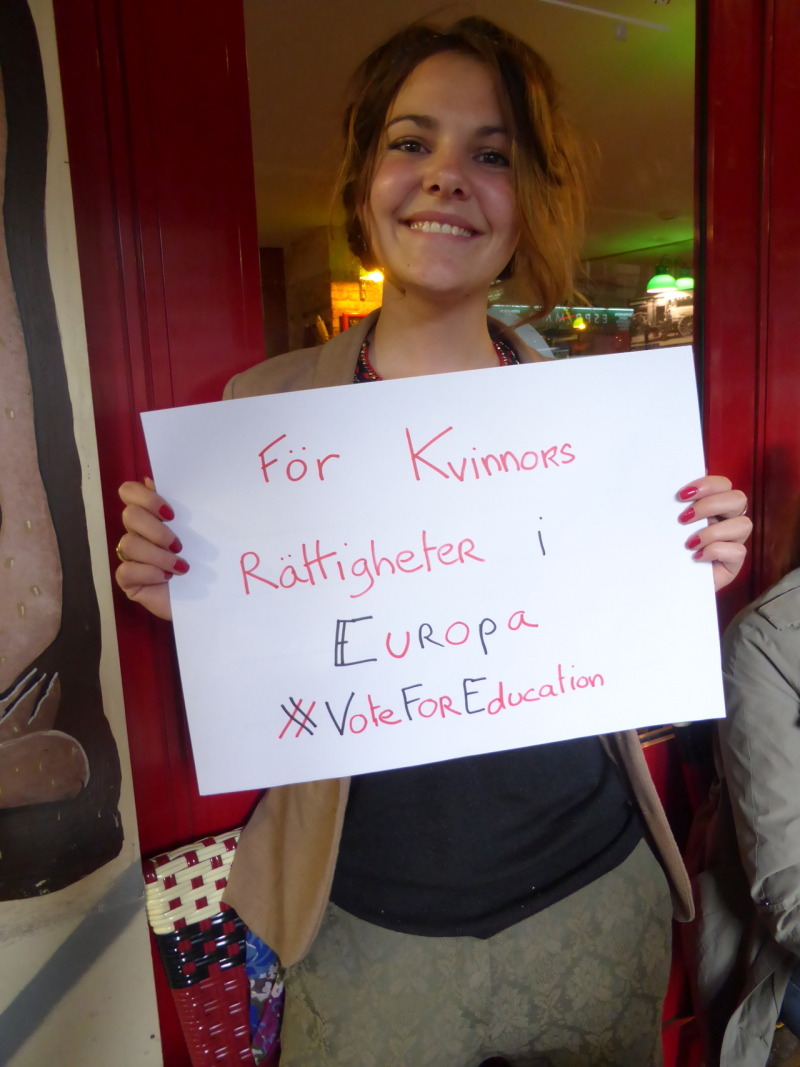 För Kvinnors
Rättigheter i
Europa
#VoteForEducation